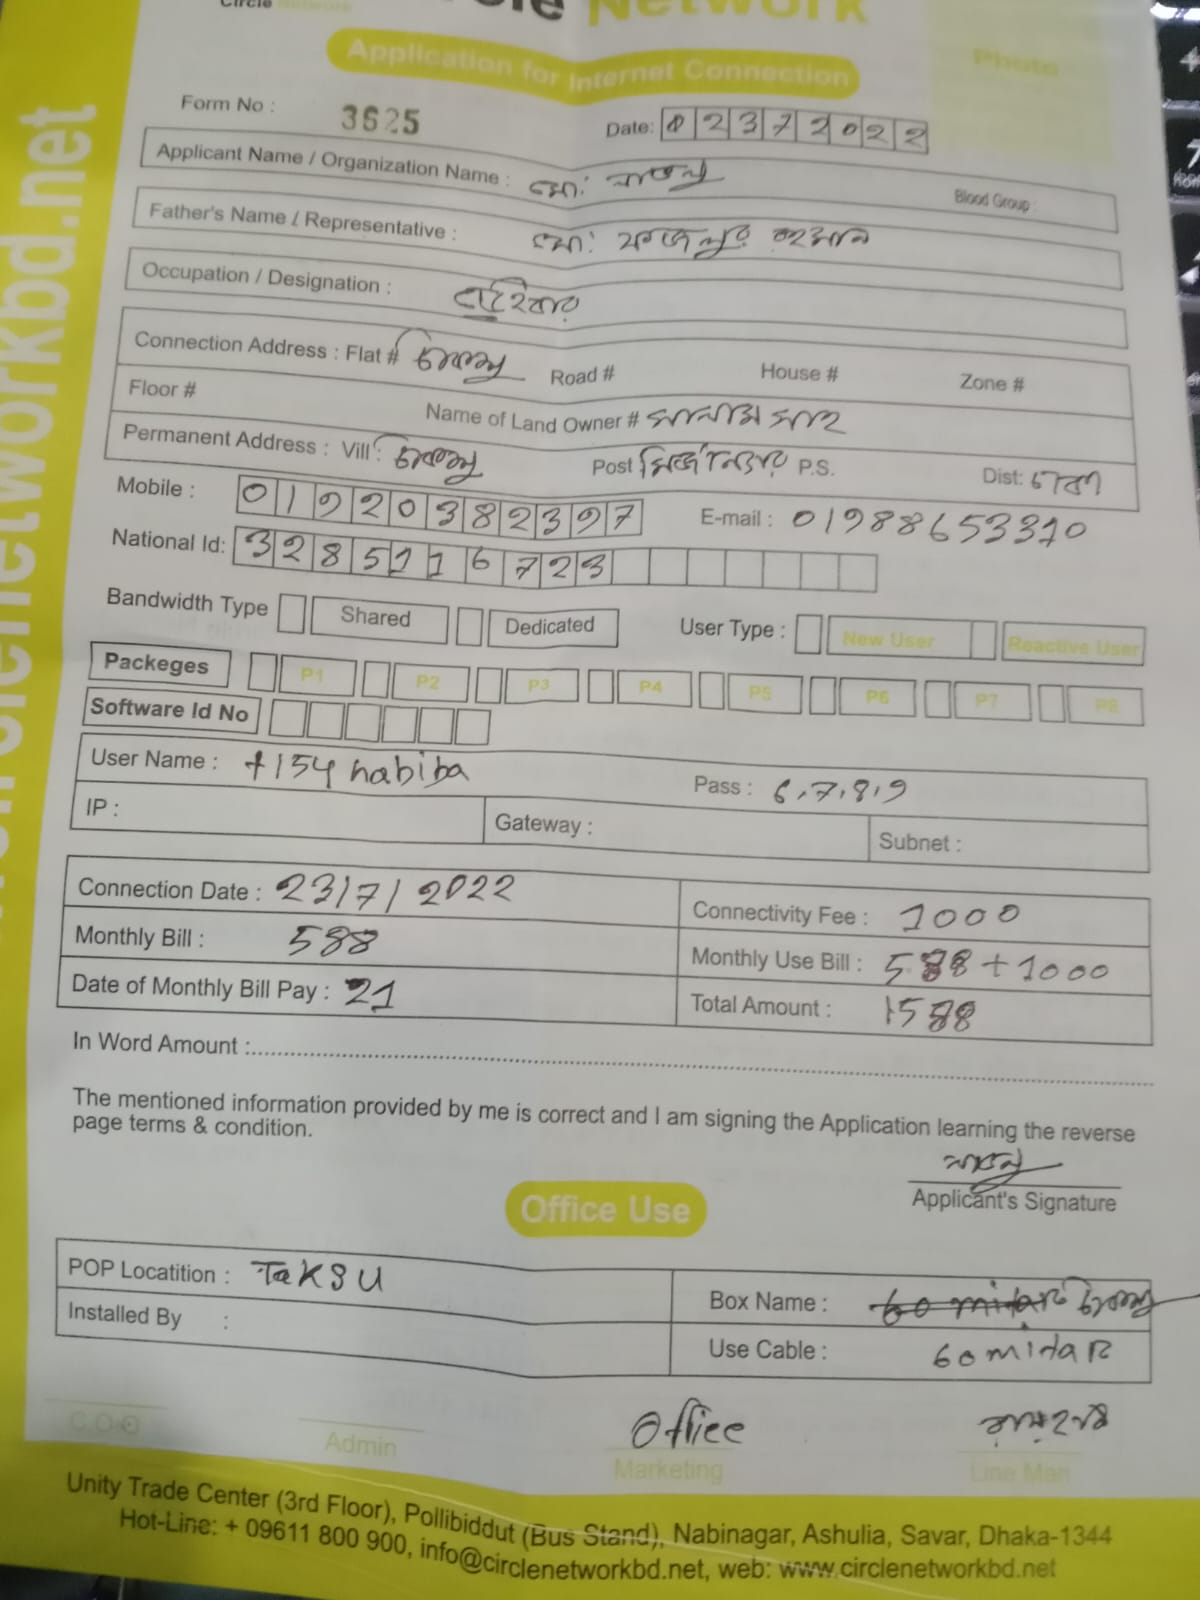 Circle Network
Circle Network
Application for Internet Connection
Photo
Form No : 3625
Date: 0 2 3 7 2 0 2 2
Applicant Name / Organization Name : মো: Blood Group :
Father's Name / Representative : মো: ফজলুর রহমান
Occupation / Designation :
Connection Address : Flat # Road # House # Zone #
Floor # Name of Land Owner #
Permanent Address : Vill : Post P.S. Dist: ঢাকা
Mobile : 01920382397 E-mail : 01988653370
National Id: 3285116723
Bandwidth Type Shared Dedicated User Type : New User Reactive User
Packeges P1 P2 P3 P4 P5 P6 P7 P8
Software Id No
User Name : + 154 habiba Pass : 6,7,8,9
IP : Gateway : Subnet :
Connection Date : 23/7/2022 Connectivity Fee : 1000
Monthly Bill : 588 Monthly Use Bill : 588+1000
Date of Monthly Bill Pay : 21 Total Amount : 1588
In Word Amount :
The mentioned information provided by me is correct and I am signing the Application learning the reverse
page terms & condition.
Applicant's Signature
Office Use
POP Locatition : TakSU Box Name :
Installed By : Use Cable : 60 mitar
C.O.O Admin Office Marketing Line Man
Unity Trade Center (3rd Floor), Pollibiddut (Bus Stand), Nabinagar, Ashulia, Savar, Dhaka-1344
Hot-Line: + 09611 800 900, info@circlenetworkbd.net, web: www.circlenetworkbd.net